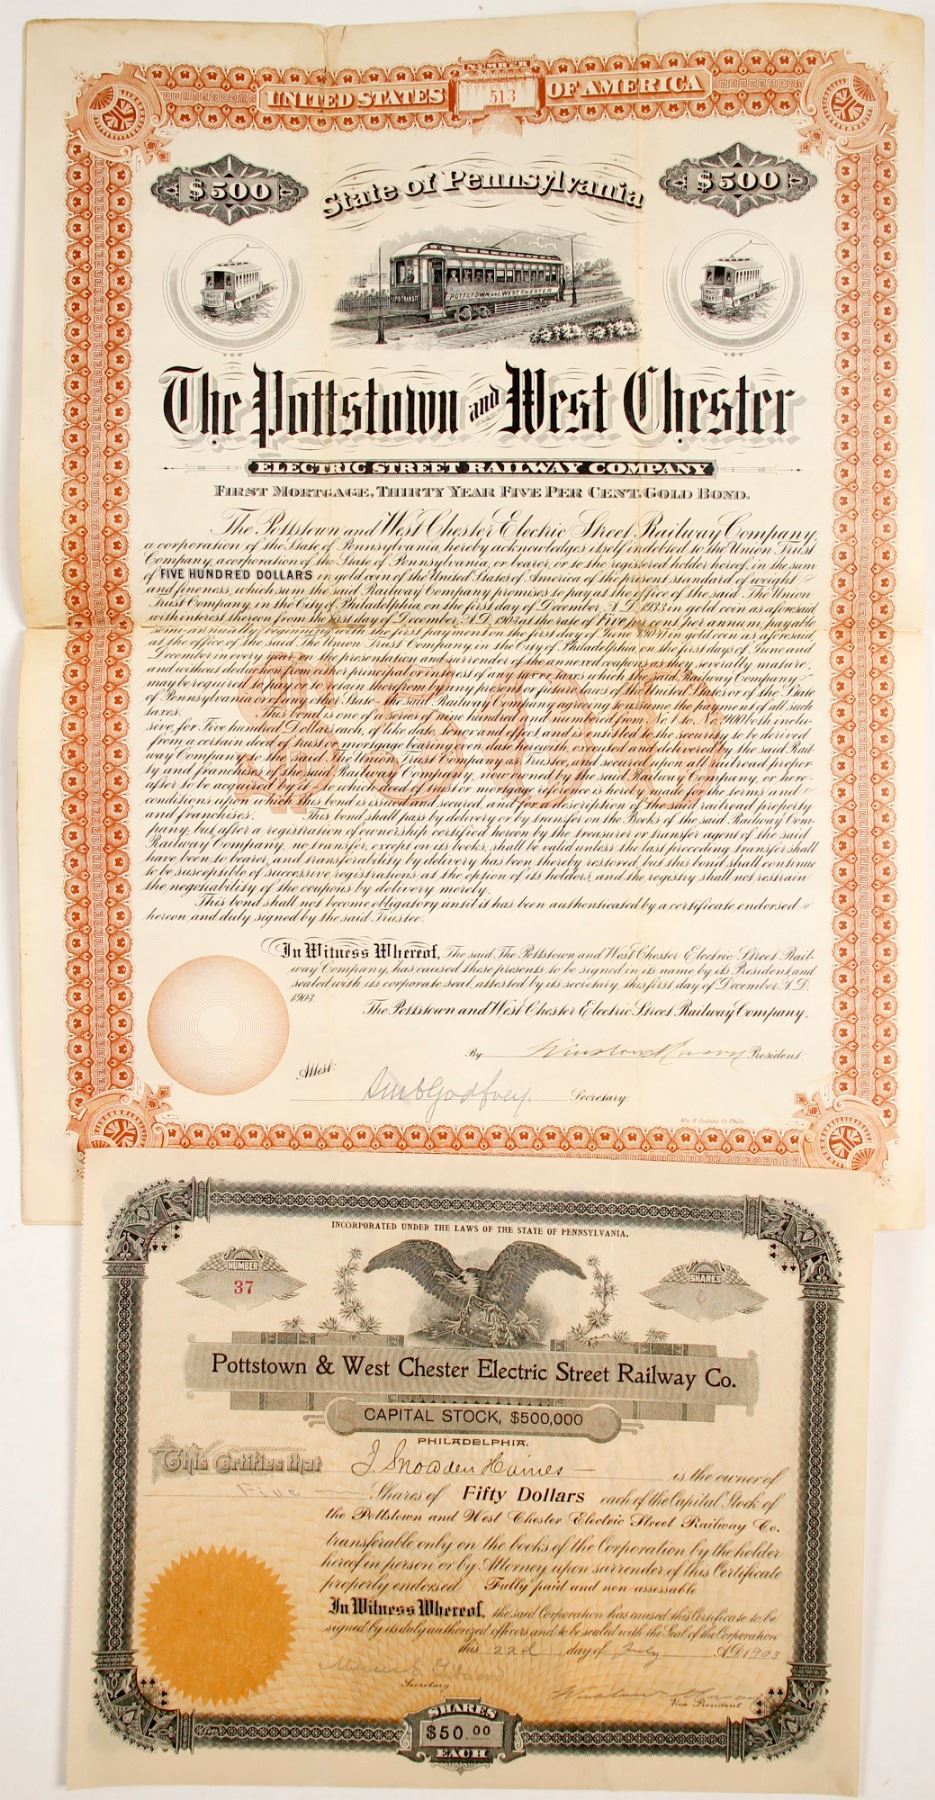 NUMBER
UNITED STATES 513 OF AMERICA
$500 State of Pennsylvania $500
RAPID TRANSIT
POTTSTOWN AND WEST CHESTER
The Pottstown and West Chester
ELECTRIC STREET RAILWAY COMPANY
FIRST MORTGAGE, THIRTY YEAR FIVE PER CENT. GOLD BOND.
The Pottstown and West Chester Electric Street Railway Company,
a corporation of the State of Pennsylvania, hereby acknowledges itself indebted to the Union Trust
Company, a corporation of the State of Pennsylvania, or bearer, or to the registered holder hereof, in the sum
of FIVE HUNDRED DOLLARS in gold coin of the United States of America of the present standard of weight
and fineness, which sum the said Railway Company promises to pay at the office of the said The Union
Trust Company, in the City of Philadelphia, on the first day of December, A.D. 1933 in gold coin as aforesaid,
with interest thereon from the first day of December, A.D. 1903 at the rate of Five per cent per annum, payable
semi-annually, beginning with the first payment on the first day of June 1904 in gold coin as aforesaid,
at the office of the said The Union Trust Company, in the City of Philadelphia, on the first days of June and
December in every year, on the presentation and surrender of the annexed coupons as they severally mature,
and without deduction from either principal or interest of any tax or taxes which the said Railway Company
may be required to pay or to retain therefrom by any present or future laws of the United States or of the State
of Pennsylvania or of any other State—the said Railway Company agreeing to assume the payment of all such
taxes. This bond is one of a series of nine hundred and numbered from No. 1 to No. 900 both inclu-
sive, for Five hundred Dollars each, of like date, tenor and effect, and is entitled to the security to be derived
from a certain deed of trust or mortgage bearing even date herewith, executed and delivered by the said Rail-
way Company to the said The Union Trust Company as Trustee, and secured upon all railroad proper-
ty and franchises of the said Railway Company, now owned by the said Railway Company, or here-
after to be acquired by it—to which deed of trust or mortgage reference is hereby made for the terms and
conditions upon which this bond is issued and secured, and for a description of the said railroad property
and franchises. This bond shall pass by delivery or by transfer on the Books of the said Railway Com-
pany, but after a registration of ownership certified hereon by the treasurer or transfer agent of the said
Railway Company, no transfer, except on its books, shall be valid unless the last preceding transfer shall
have been to bearer, and transferability by delivery has been thereby restored, but this bond shall continue
to be susceptible of successive registrations at the option of its holders, and the registry shall not restrain
the negotiability of the coupons by delivery merely.
This bond shall not become obligatory until it has been authenticated by a certificate endorsed
hereon and duly signed by the said Trustee.
In Witness Whereof, The said The Pottstown and West Chester Electric Street Rail-
way Company, has caused these presents to be signed in its name by its President, and
sealed with its corporate seal, attested by its secretary, this first day of December A.D.
1903.
The Pottstown and West Chester Electric Street Railway Company.
By President.
Attest:
Godfrey. Secretary.
INCORPORATED UNDER THE LAWS OF THE STATE OF PENNSYLVANIA.
NUMBER SHARES
37
Pottstown & West Chester Electric Street Railway Co.
CAPITAL STOCK, $500,000
PHILADELPHIA.
This Certifies that J. Snowden Haines is the owner of
Five Shares of Fifty Dollars each of the Capital Stock of
the Pottstown and West Chester Electric Street Railway Co.
transferable only on the books of the Corporation by the holder
hereof in person or by Attorney upon surrender of this Certificate
properly endorsed. Fully paid and non-assessable
In Witness Whereof, the said Corporation has caused this Certificate to be
signed by its duly authorized officers and to be sealed with the Seal of the Corporation
this 22d day of July A.D. 1903
Secretary
Vice President
SHARES
$50.00
EACH